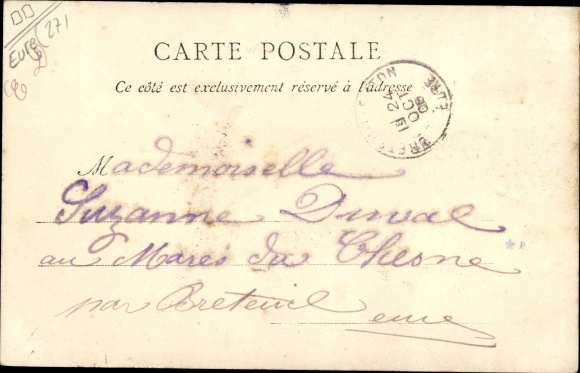 Eure (27)
CARTE POSTALE
Ce côté est exclusivement réservé à l'adresse
24
OCT
06
EURE
Mademoiselle
Suzanne Duval
au Mares du Chesne
par Breteuil
eure